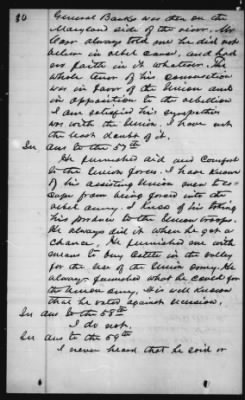 30
General Banks was then on the
Maryland side of the river. Mr
Carr always told me he did not
believe in rebel cause, and had
no faith in it whatever. The
whole tenor of his conversation
was in favor of the Union and
in opposition to the rebellion
I am satisfied his sympathies
was with the Union. I have not
the least doubt of it.
In ans to the 57th
He furnished aid and comfort
to the Union forces. I have known
of his assisting Union men to es-
cape from being forced into the
rebel army. I knew of his taking
his produce to the Union troops.
He always did it when he got a
chance. He furnished me with
means to buy cattle in the valley
for the use of the Union army. He
always furnished what he could for
the Union army. It is well known
that he voted against secession.
In ans to the 58th
I do not.
In ans to the 59th
I never heard that he said or